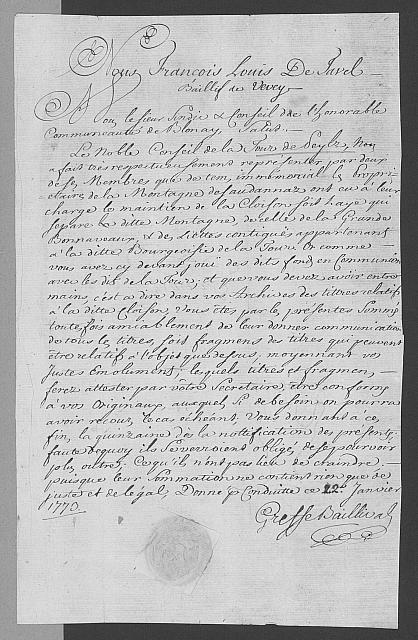 Nous François Louis De Tavel
Baillif de Vevey
A Vou, le sieur Sindic & Conseil de l'honorable
Communeauté de Blonay, Salut.
Le Noble Conseil de la Tour de Peylz, Nou
a fait très respectueusement représenter par deux
de ses Membres que de tem, immémorial, propri-
étaire, de la Montagne de Jaudannaz ont eu à leur
charge le maintien de la Cloison soit haye qui
sépare ditte Montagne, de celle de la Grande
Bonnavaux, & des contigues appartenant
à la ditte Bourgeoisie de la Tour, Or comme
vous avez cy devant joui des dits fond, en Communion
avec les dits de la Tour, et que vous devez avoir entre
mains c'est à dire dans vos Archives des tittres relatif
à la ditte Cloison, Vous êtes par le, présentes Sommé
toutefois amiablement de leur donner communication
de tous le, titres, soit fragmens des titres qui peuvent
être relatif à l'objet que dessus, moyennant vos
Justes Emolument, lequels titres et fragmen,
ferez attester par votre Secretaire, être conforme
à vos Originaux, auxquel, si de besoin on pourra
avoir recour, le cas échéant, Vous donnant à ce,
fin, la quinzaine dès la notification des présente,
faute dequoy ils se verroient obligé de se pourvoir
plus outre, Ce qu'ils n'ont pas lieu de craindre
puisque leur Sommation ne contient rien que de
juste et de légal, Donné p. Conduitte ce 22e Janvier
1770.
Greffe Baillival